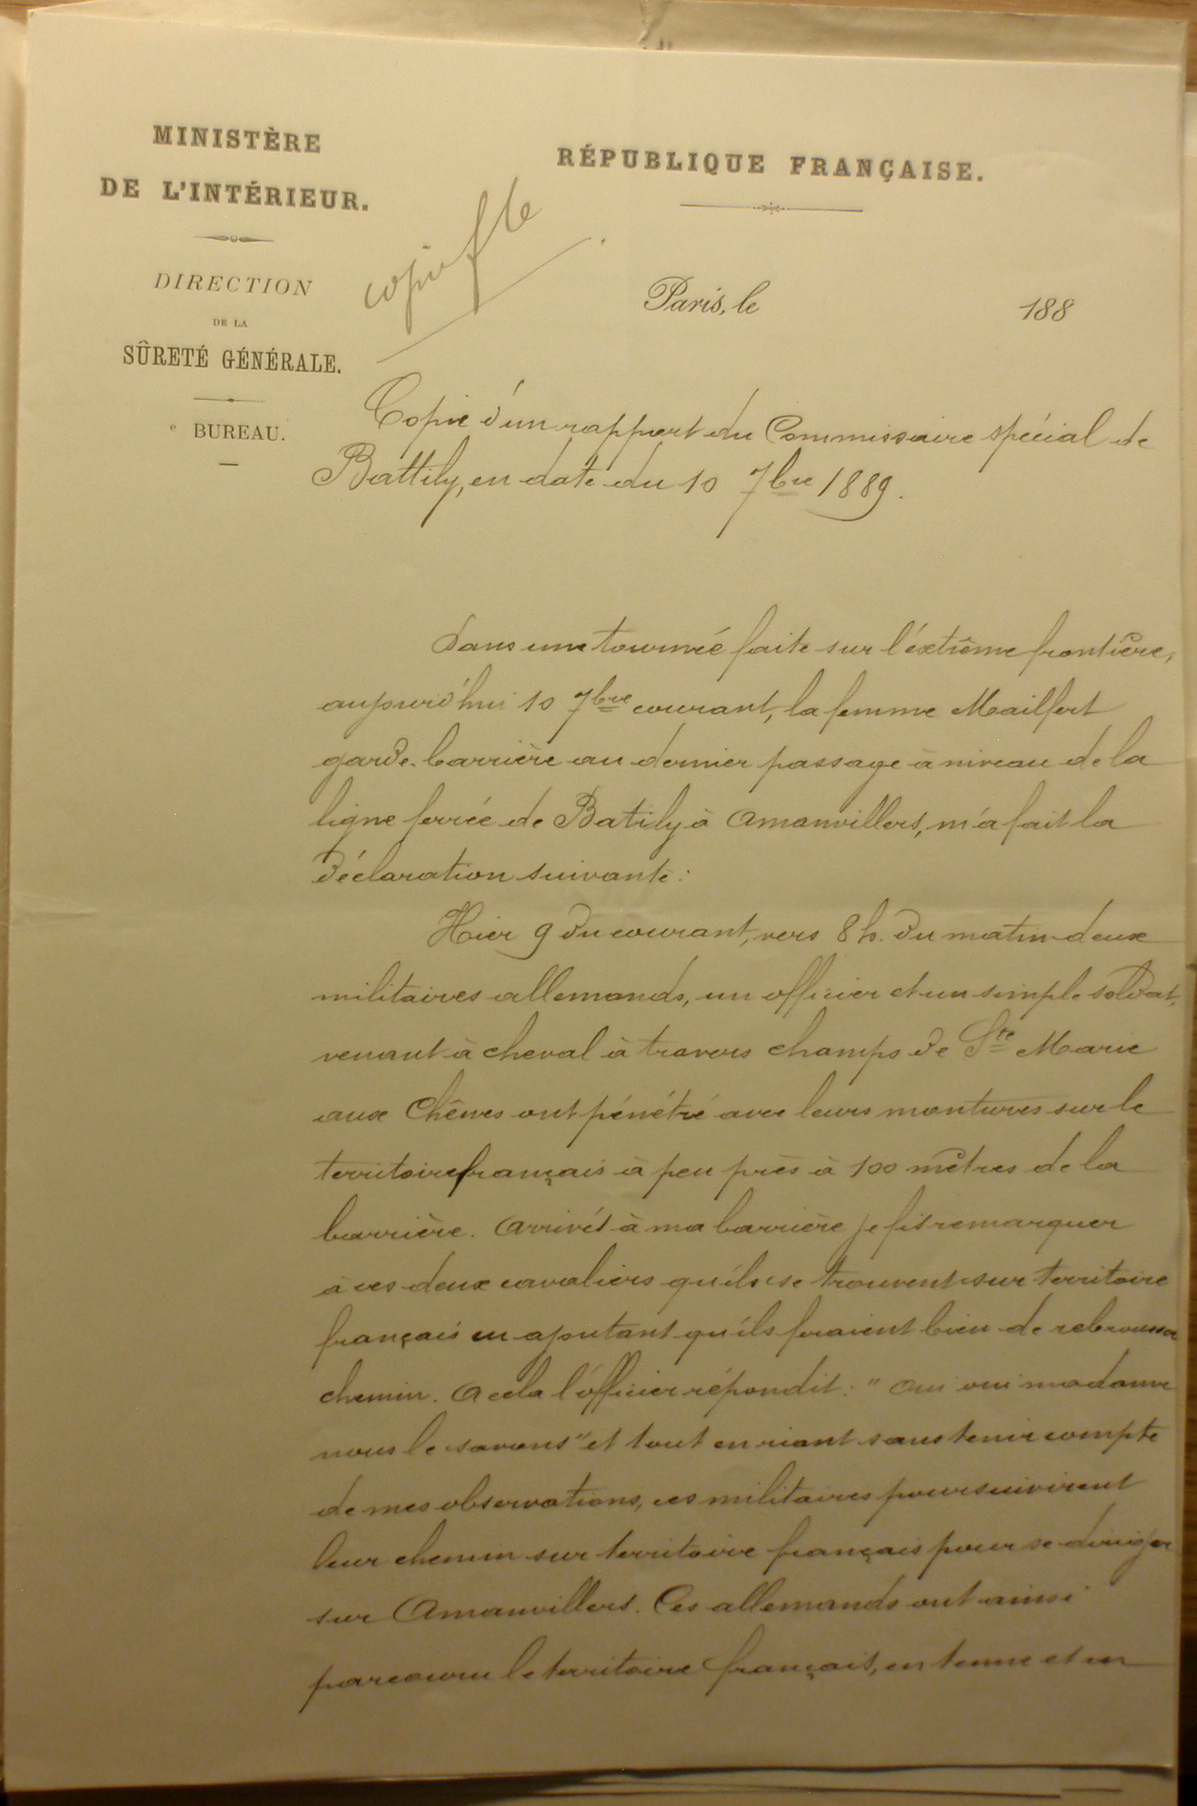 MINISTÈRE
DE L'INTÉRIEUR.
DIRECTION
DE LA
SÛRETÉ GÉNÉRALE.
e BUREAU.
RÉPUBLIQUE FRANÇAISE.
copie
Paris, le 188
Copie d'un rapport du Commissaire spécial de
Battily, en date du 10 7bre 1889.
Dans une tournée faite sur l'éxtrême frontière,
aujourd'hui 10 7bre courant, la femme Mailfert
garde-barrière au dernier passage à niveau de la
ligne ferrée de Batily à Amanvillers, m'a fait la
déclaration suivante:
Hier 9 du courant, vers 8 h. du matin deux
militaires allemands, un officier et un simple soldat,
venant à cheval à travers champs de Ste Marie
aux Chênes ont pénétré avec leurs montures sur le
territoire français à peu près à 100 mètres de la
barrière. Arrivés à ma barrière je fis remarquer
à ces deux cavaliers qu'ils se trouvent sur territoire
français en ajoutant qu'ils feraient bien de rebrousser
chemin. A cela l'officier répondit: "Oui oui madame
nous le savons" et tout en riant sans tenir compte
de mes observations, ces militaires poursuivirent
leur chemin sur territoire français pour se diriger
sur Amanvillers. Ces allemands ont ainsi
parcouru le territoire français, en tenue et en